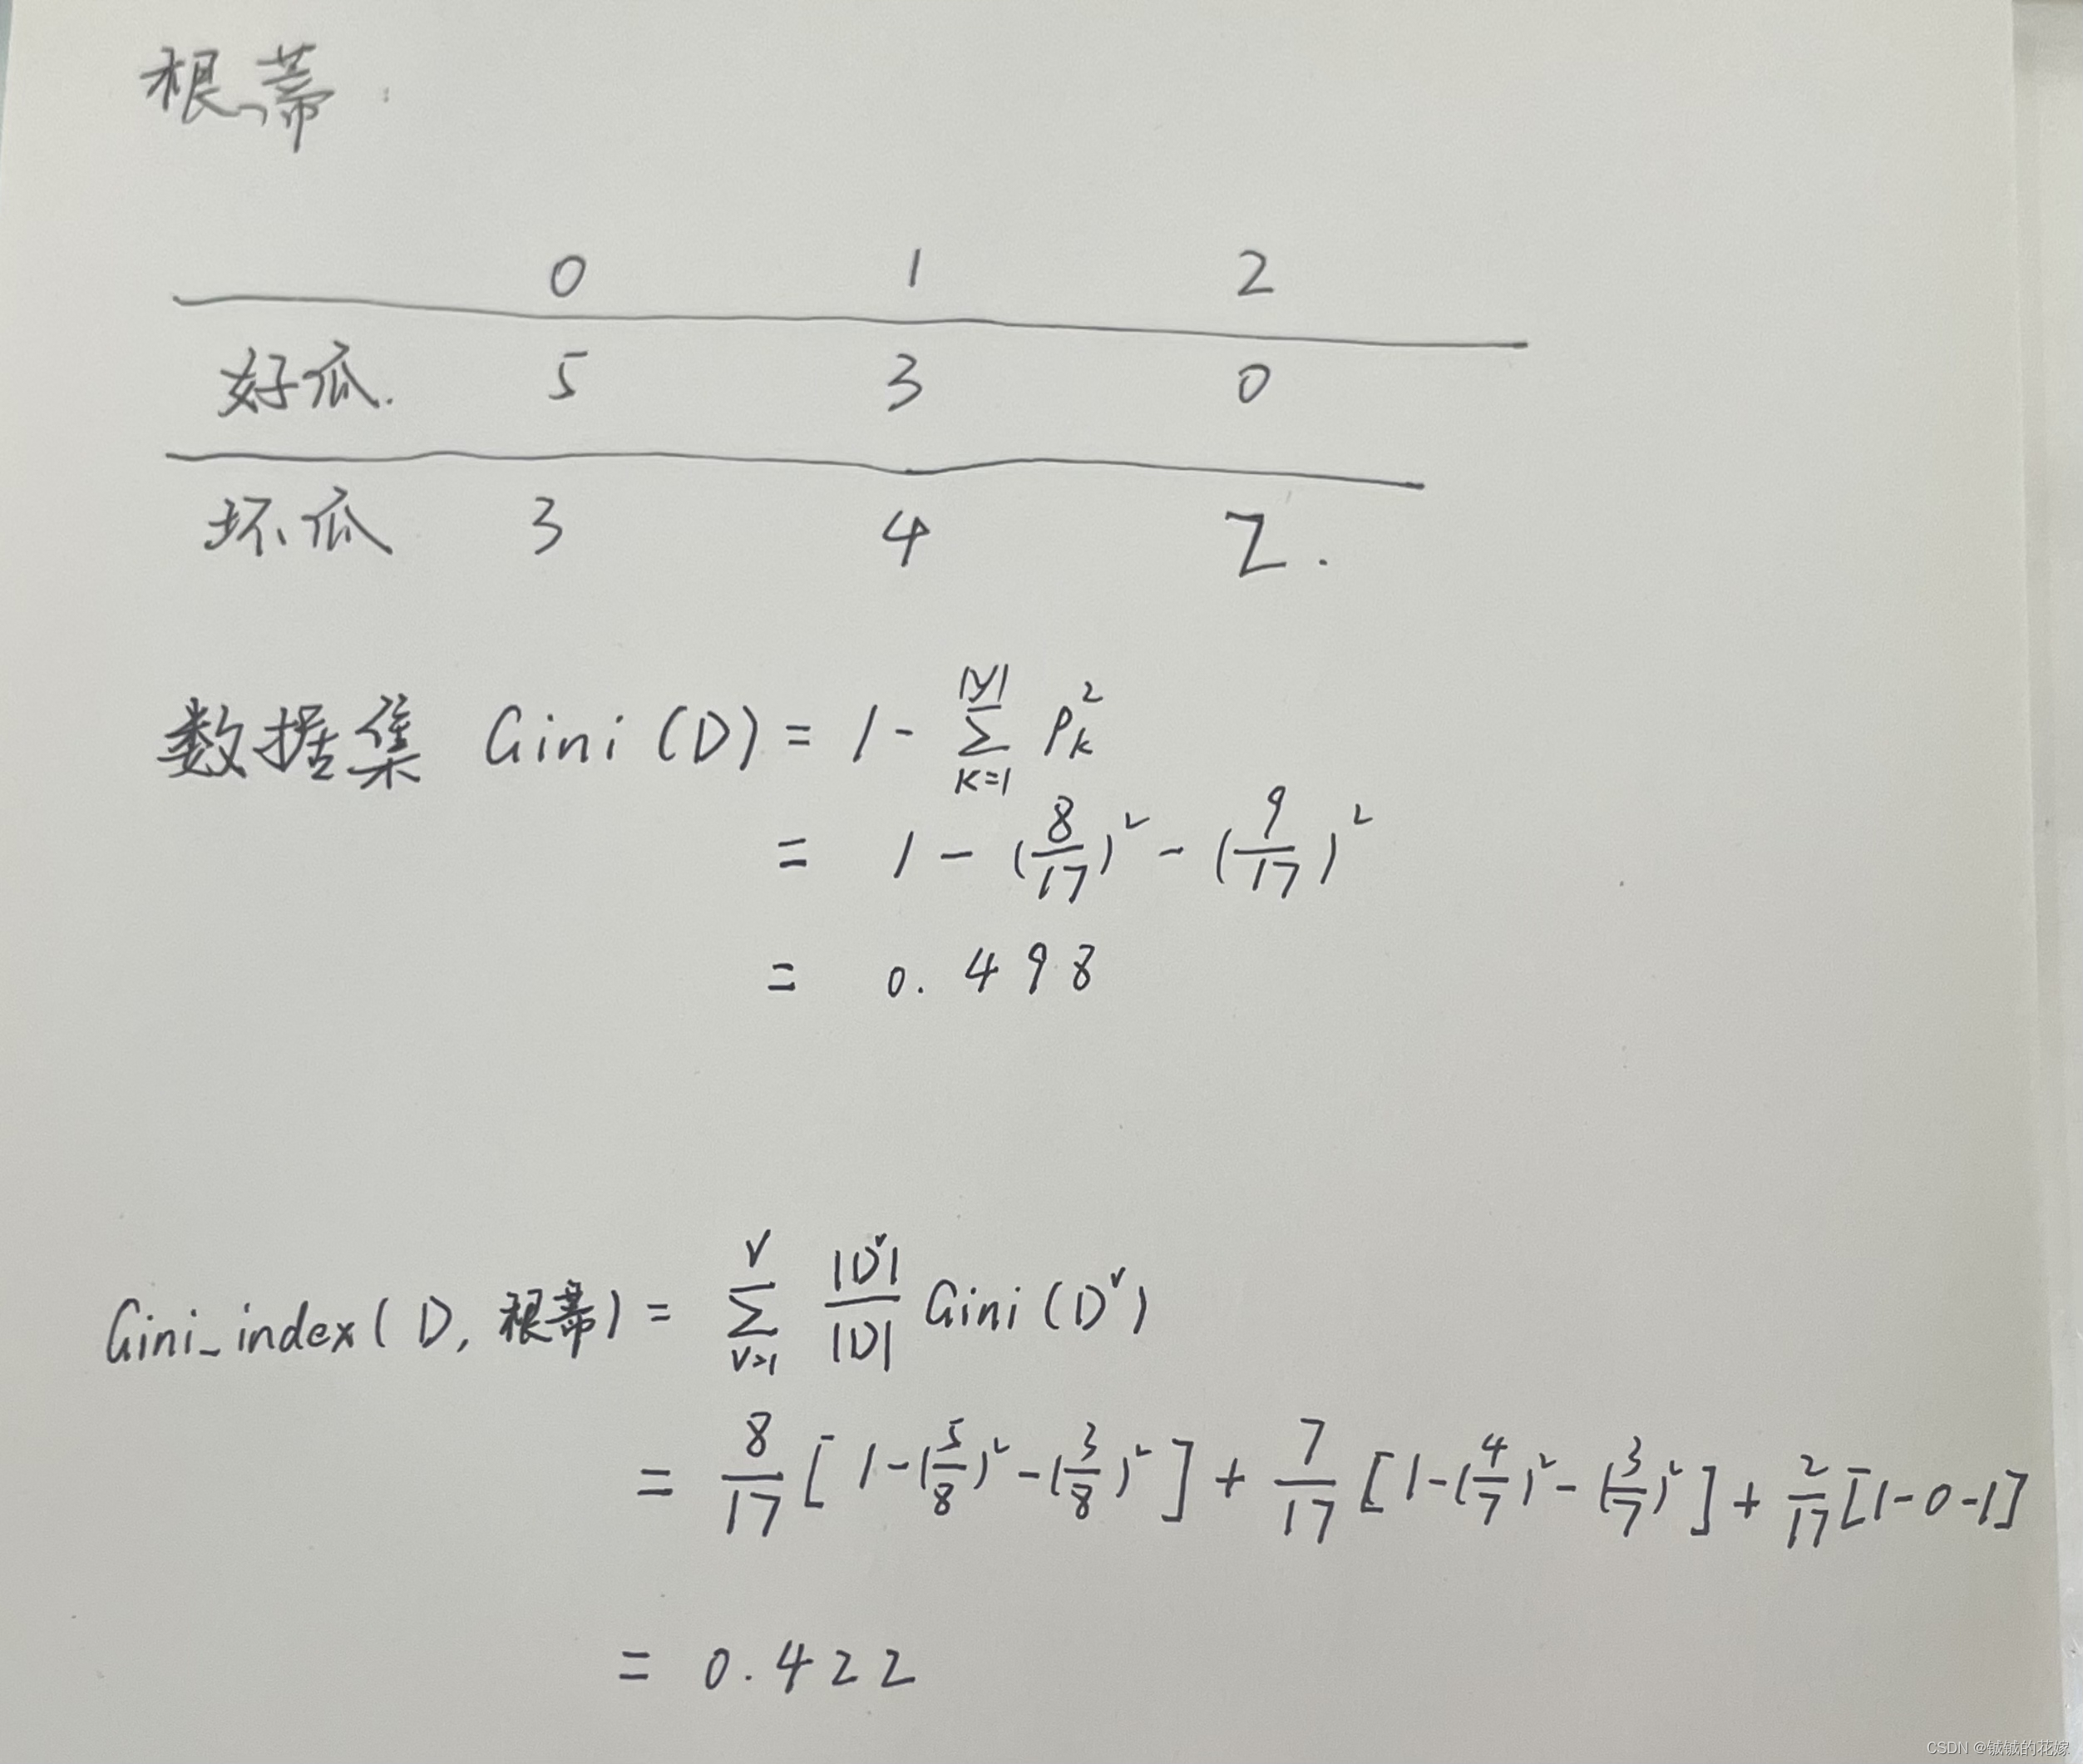 根蒂:
0 1 2
好瓜. 5 3 0
坏瓜 3 4 2.
数据集 Gini (D) = 1 - ∑_{k=1}^{|y|} p_k^2
= 1 - (8/17)^2 - (9/17)^2
= 0.498
Gini_index(D, 根蒂) = ∑_{v=1}^{V} |D^v|/|D| Gini(D^v)
= 8/17 [1-(5/8)^2-(3/8)^2] + 7/17 [1-(4/7)^2-(3/7)^2] + 2/17 [1-0-1]
= 0.422
CSDN @铖铖的花嫁